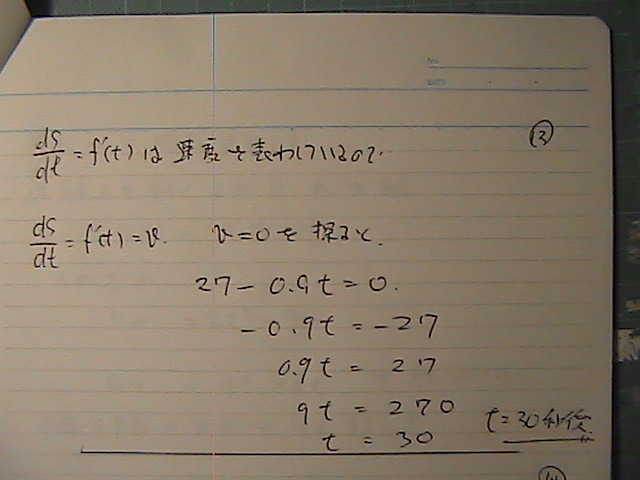 NO.
DATE
③
dS/dt = f'(t) は 速度を表わしているので.
dS/dt = f'(t) = v. v=0を探ると.
27 - 0.9t = 0.
-0.9t = -27
0.9t = 27
9t = 270
t = 30
t=30秒後